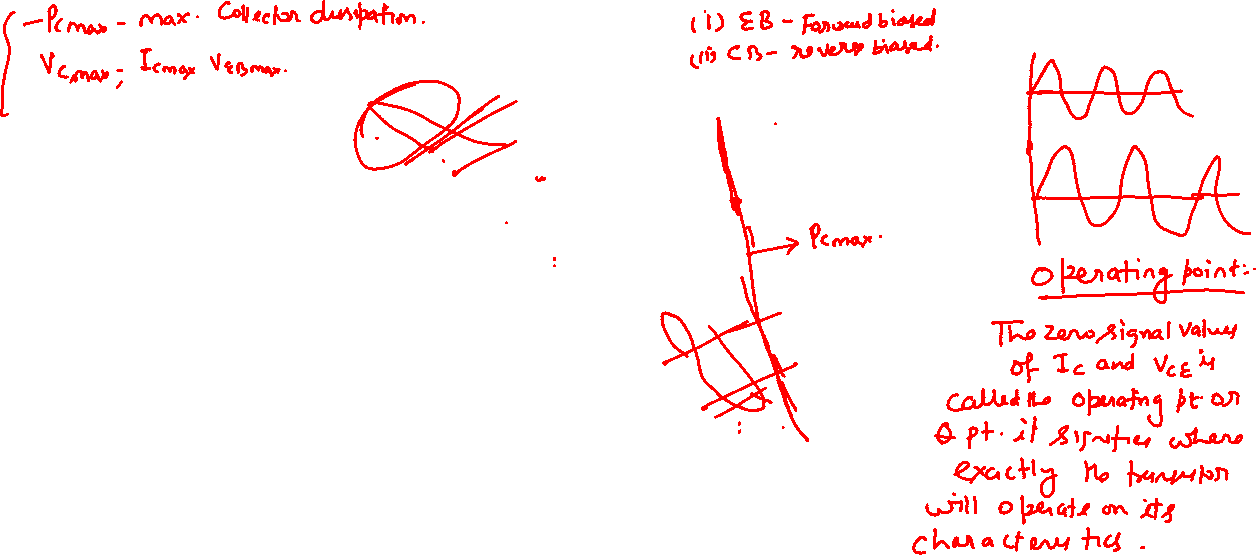 - Pcmax - max. Collector dissipation.
VC,max, Icmax VEBmax.
(i) EB - Forward biased
(ii) CB - reverse biased.
Pcmax.
Operating point:-
The zero signal values
of IC and VCE is
called the operating pt or
Q pt. it signifies where
exactly the transistor
will operate on its
characteristics.